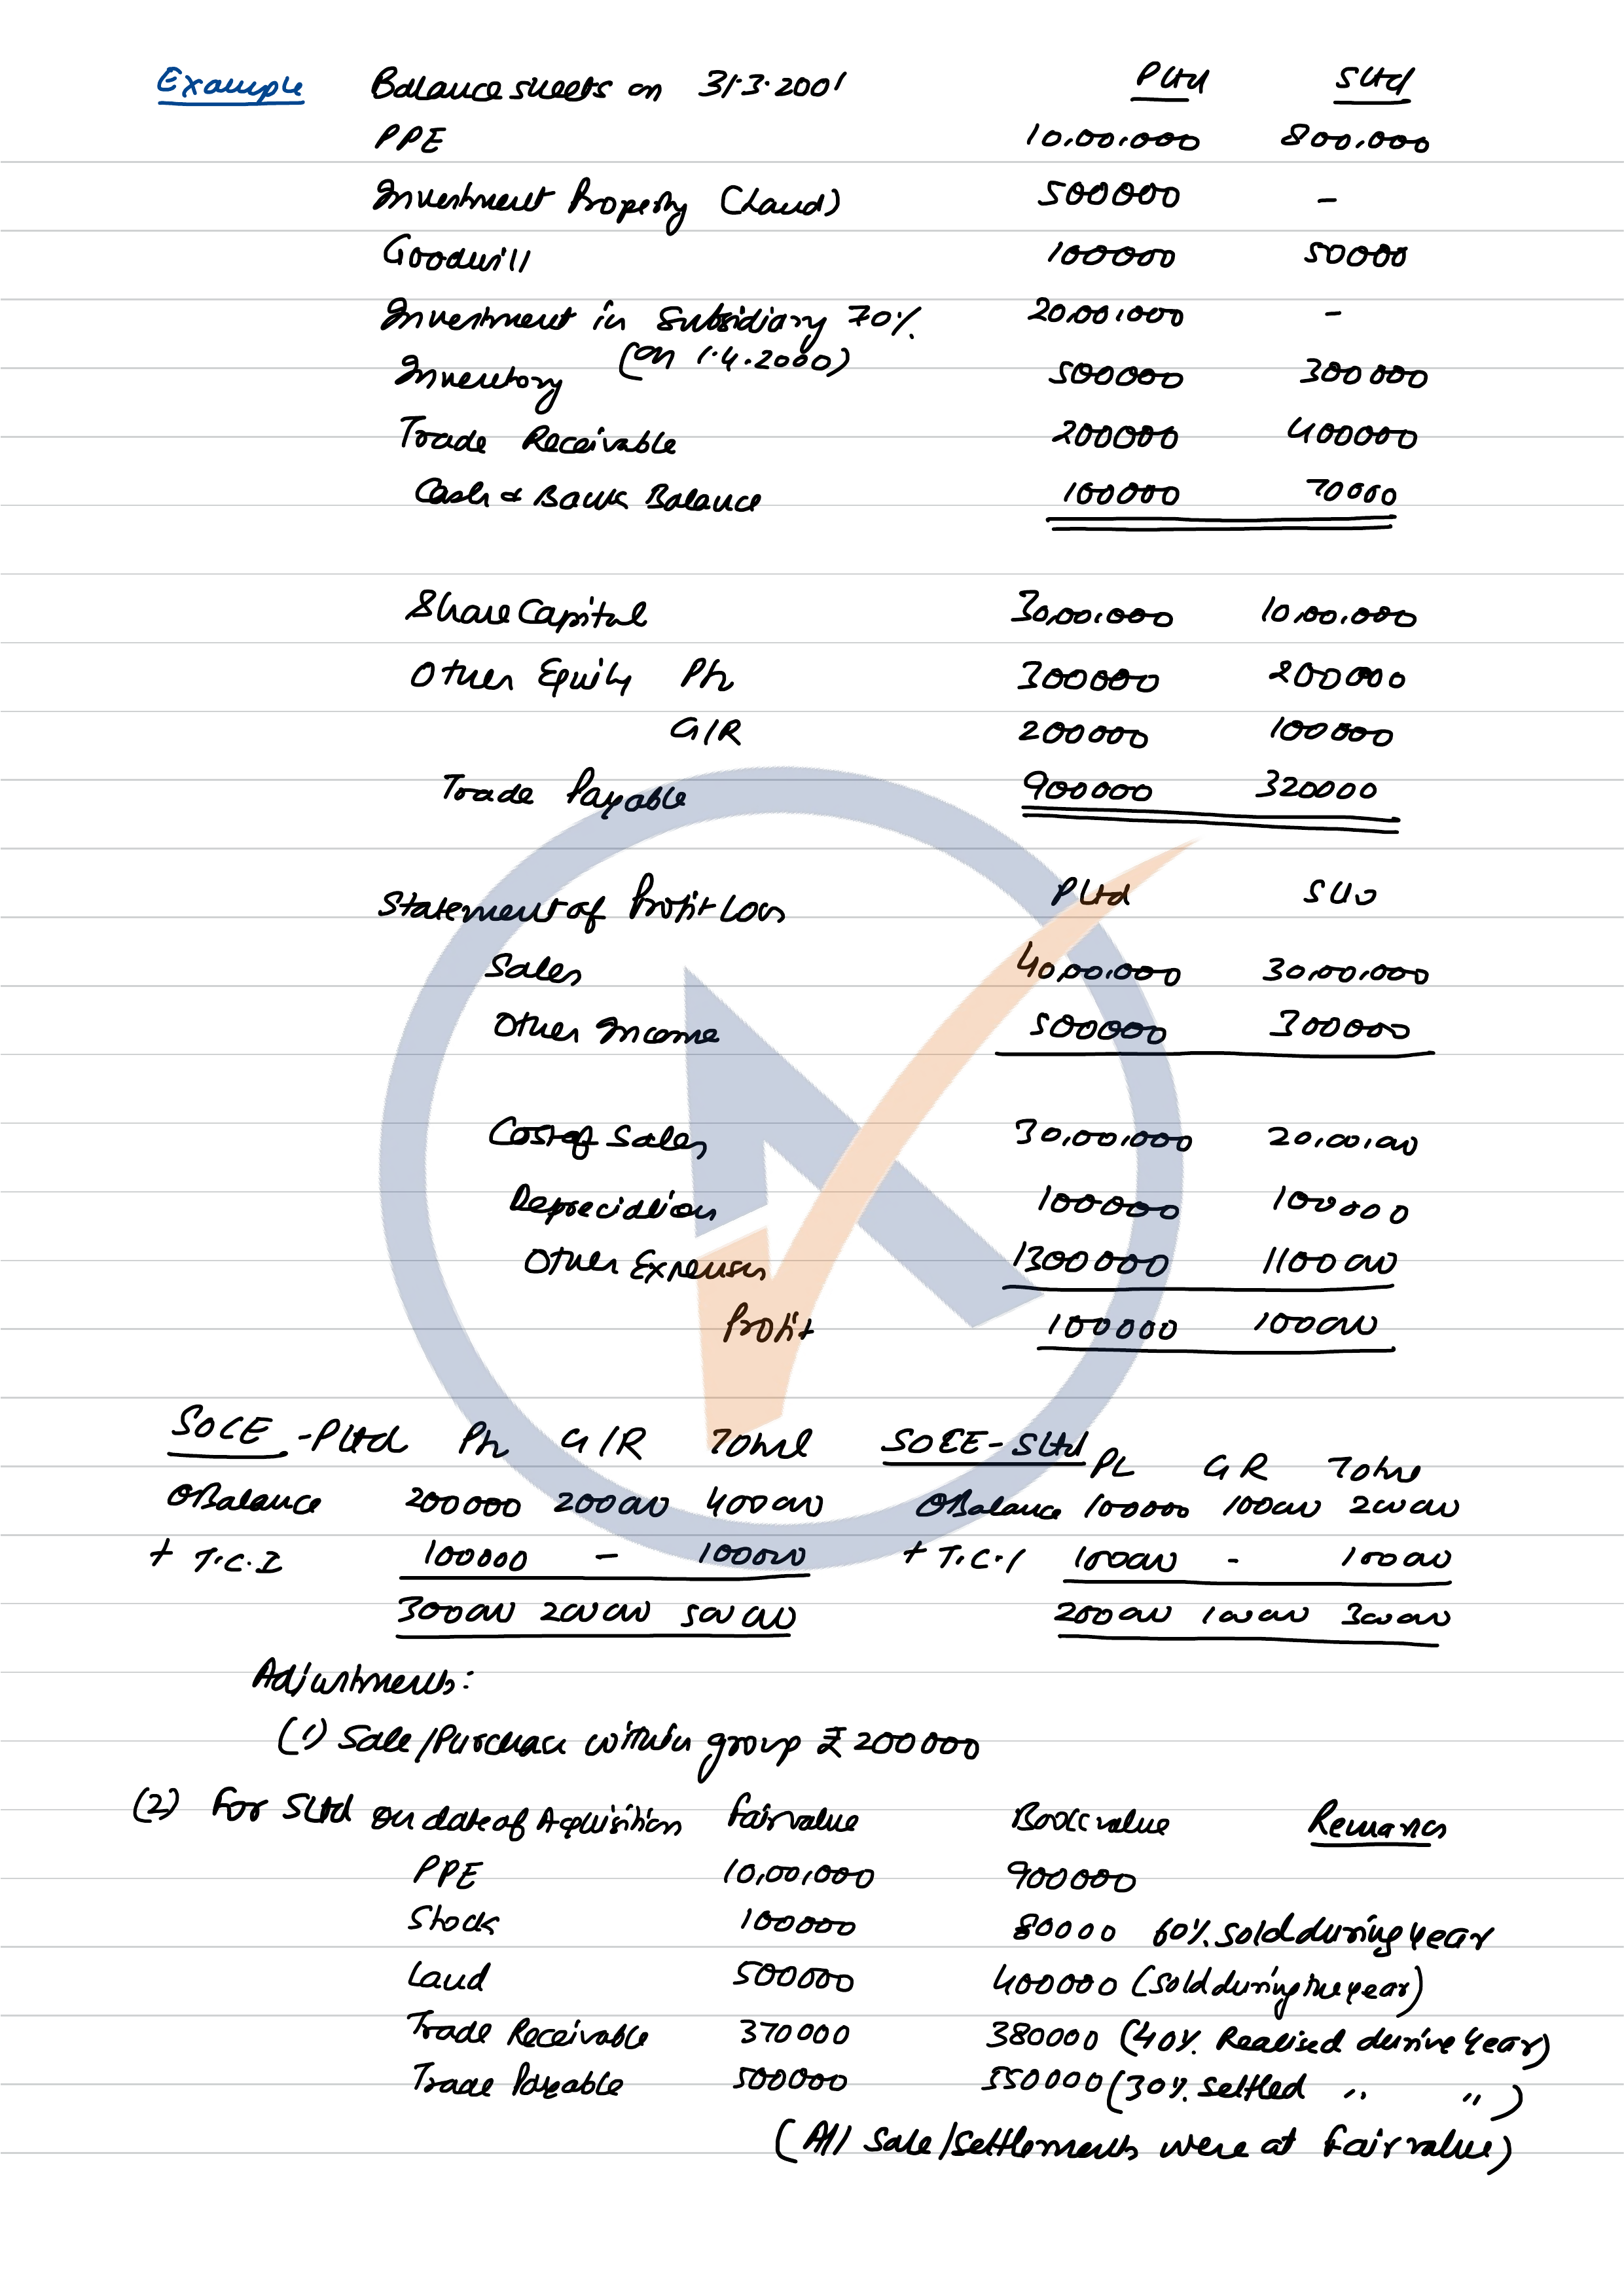 Example Balance sheets on 31.3.2001 P Ltd S Ltd
PPE 10,00,000 800,000
Investment Property (Land) 500000 -
Goodwill 100000 50000
Investment in Subsidiary 70% 20,00,000 -
(on 1.4.2000)
Inventory 500000 300000
Trade Receivable 200000 400000
Cash & Bank Balance 100000 70000
Share Capital 30,00,000 10,00,000
Other Equity P/L 300000 200000
G/R 200000 100000
Trade Payable 900000 320000
Statement of Profit Loss P Ltd S Ltd
Sales 40,00,000 30,00,000
Other Income 500000 300000
Cost of Sales 30,00,000 20,00,000
Depreciation 100000 100000
Other Expenses 1300000 1100000
Profit 100000 100000
SOCE - P Ltd P/L G/R Total SOCE - S Ltd PL GR Total
O Balance 200000 200000 400000 O Balance 100000 100000 200000
+ T.C.I 100000 - 100000 + T.C.I 100000 - 100000
300000 200000 500000 200000 100000 300000
Adjustments:
(1) Sale/Purchase within group ₹ 200000
(2) For S Ltd on date of Acquisition Fair value Book value Remarks
PPE 10,00,000 900000
Stock 100000 80000 60% sold during year
Land 500000 400000 (sold during the year)
Trade Receivable 370000 380000 (40% Realised during year)
Trade Payable 500000 550000 (30% settled " ")
(All sale/settlements were at fair value)